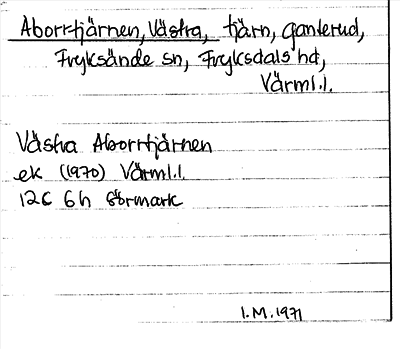 Aborrtjärnen, Västra, tjärn, Ganterud,
Fryksände sn, Fryksdals hd,
Värml.l.
Västra Aborrtjärnen
ek (1970) Värml.l.
12C 6h Sörmark
I.M. 1971